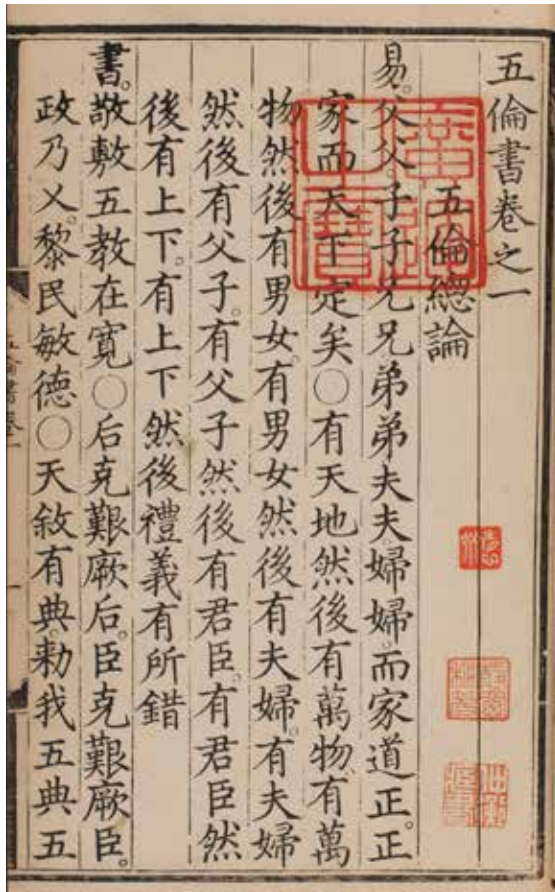 五倫書卷之一
五倫總論
易。父父。子子兄兄弟弟夫夫婦婦。而家道正。正
家而天下定矣○有天地然後有萬物。有萬
物然後有男女。有男女然後有夫婦。有夫婦
然後有父子。有父子然後有君臣。有君臣然
後有上下。有上下然後禮義有所錯
書。敬敷五教在寬○后克艱厥后。臣克艱厥臣。
政乃乂。黎民敏德○天敘有典。勑我五典五
廣運之寶